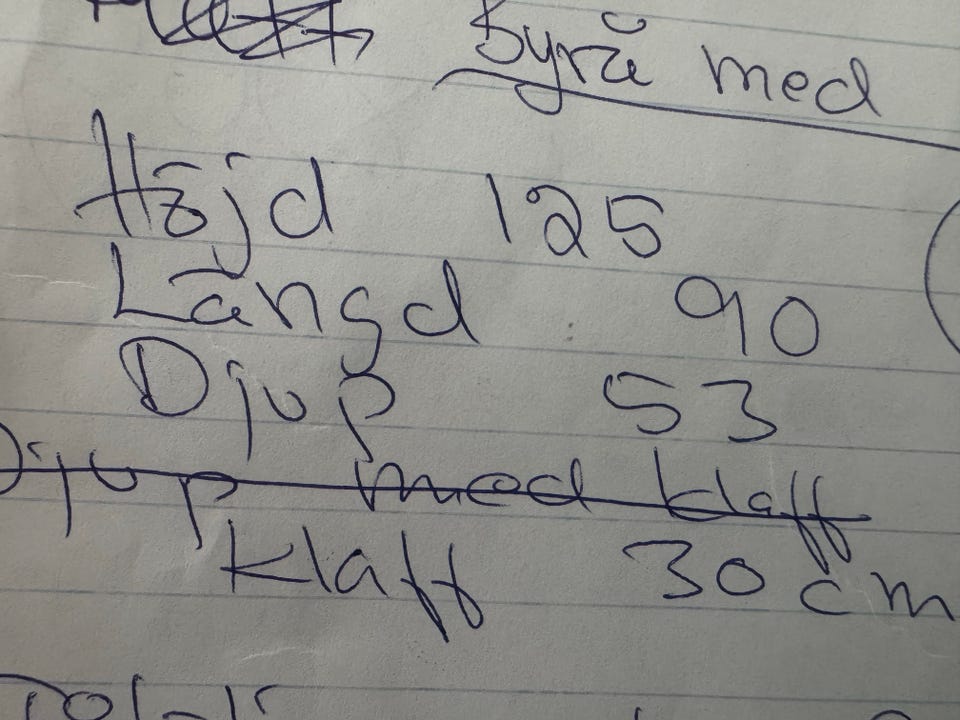 Byrå med
Höjd 125
Längd 90
Djup 53
Djup med klaff
Klaff 30 cm